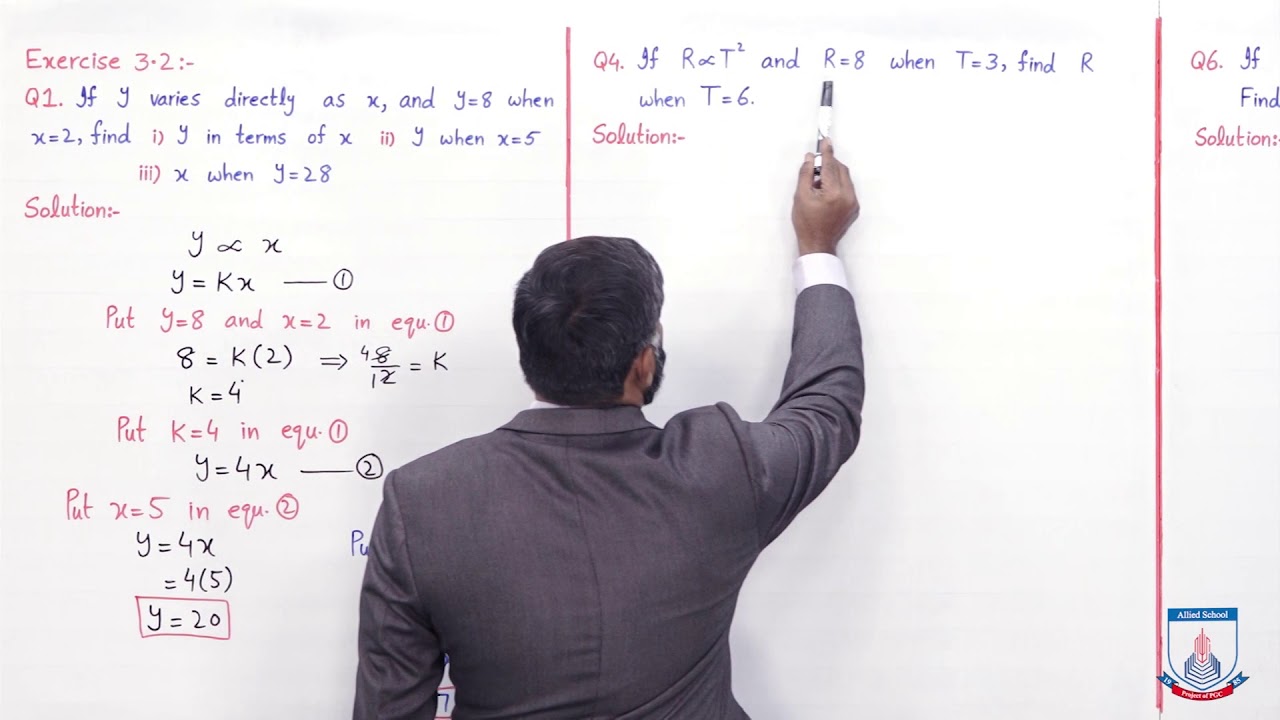 Exercise 3.2:-
Q1. If y varies directly as x, and y=8 when
x=2, find i) y in terms of x ii) y when x=5
iii) x when y=28
Solution:-
y ∝ x
y = Kx —— ①
Put y=8 and x=2 in equ.①
8 = K(2) ⇒ 4 8/1 2 = K
K = 4
Put K=4 in equ.①
y = 4x —— ②
Put x=5 in equ.②
y = 4x
= 4(5)
y = 20
Q4. If R∝T² and R=8 when T=3, find R
when T=6.
Solution:-
Q6. If
Find
Solution:-
Allied School
19 85
Project of PGC